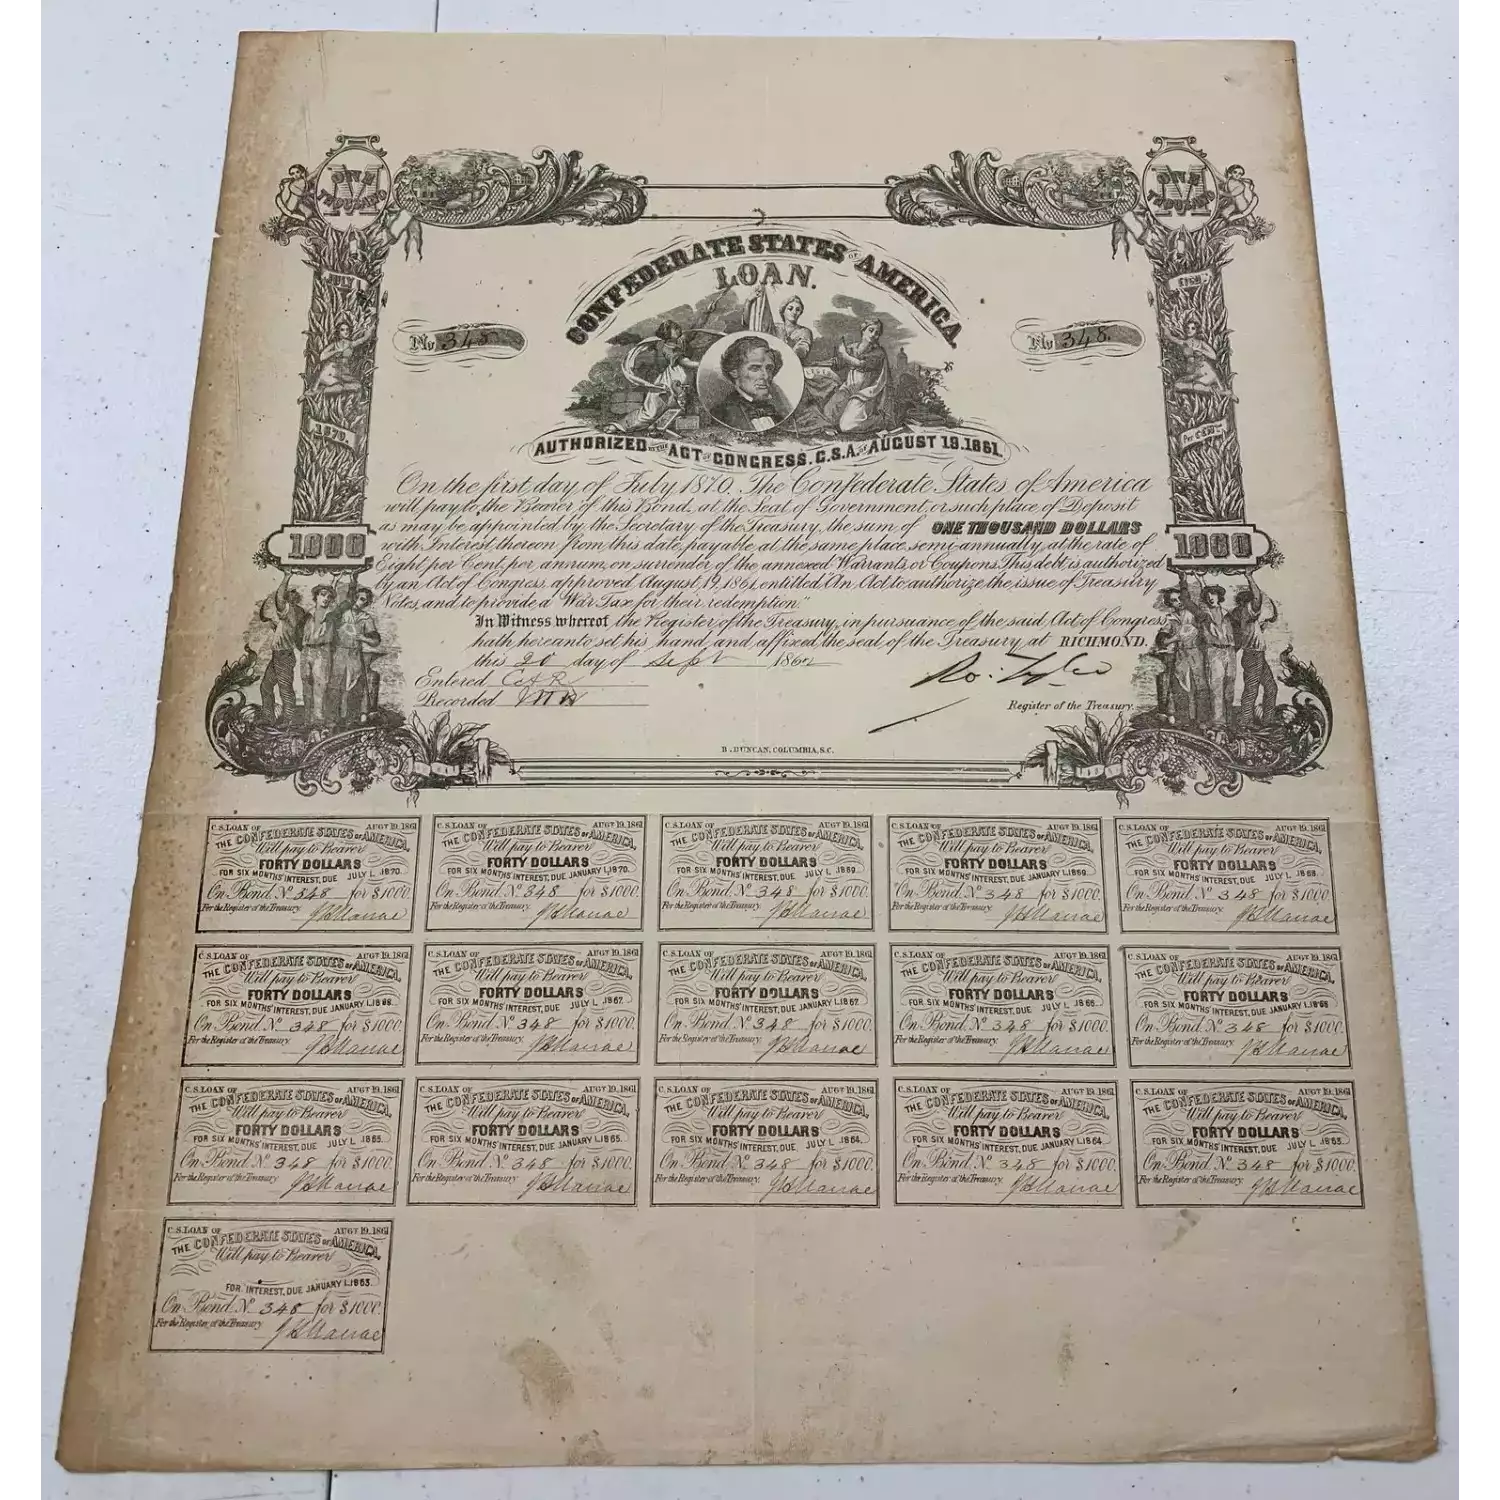 ONE M THOUSAND
ONE M THOUSAND
CONFEDERATE STATES OF AMERICA
LOAN.
JULY 1
1870.
No 348
No 348.
AUTHORIZED BY THE ACT OF CONGRESS. C.S.A. OF AUGUST 19.1861.
On the first day of July 1870. The Confederate States of America
will pay to the Bearer of this Bond, at the Seat of Government, or such place of Deposit
as may be appointed by the Secretary of the Treasury, the sum of ONE THOUSAND DOLLARS
with Interest thereon from this date, payable at the same place semi-annually, at the rate of
Eight per Cent. per annum, on surrender of the annexed Warrants or Coupons. This debt is authorized
by an Act of Congress, approved August, 19, 1861, entitled An Act to authorize the issue of Treasury
Notes, and to provide a War Tax for their redemption."
1000
1000
In Witness whereof the Register of the Treasury, in pursuance of the said Act of Congress,
hath hereunto set his hand and affixed the seal of the Treasury at RICHMOND.
this 20 day of Sept 1862
Entered
Recorded
Register of the Treasury.
B. DUNCAN, COLUMBIA, S.C.
C.S. LOAN OF AUGT 19. 1861
THE CONFEDERATE STATES OF AMERICA,
Will pay to Bearer
FORTY DOLLARS
FOR SIX MONTHS' INTEREST, DUE JULY 1, 1870.
On Bond No 348 for $1000.
For the Register of the Treasury.
C.S. LOAN OF AUGT 19. 1861
THE CONFEDERATE STATES OF AMERICA,
Will pay to Bearer
FORTY DOLLARS
FOR SIX MONTHS' INTEREST, DUE JANUARY 1, 1870.
On Bond No 348 for $1000.
For the Register of the Treasury.
C.S. LOAN OF AUGT 19. 1861
THE CONFEDERATE STATES OF AMERICA,
Will pay to Bearer
FORTY DOLLARS
FOR SIX MONTHS' INTEREST, DUE JULY 1, 1869.
On Bond No 348 for $1000.
For the Register of the Treasury.
C.S. LOAN OF AUGT 19. 1861
THE CONFEDERATE STATES OF AMERICA,
Will pay to Bearer
FORTY DOLLARS
FOR SIX MONTHS' INTEREST, DUE JANUARY 1, 1869.
On Bond No 348 for $1000.
For the Register of the Treasury.
C.S. LOAN OF AUGT 19. 1861
THE CONFEDERATE STATES OF AMERICA,
Will pay to Bearer
FORTY DOLLARS
FOR SIX MONTHS' INTEREST, DUE JULY 1, 1868.
On Bond No 348 for $1000.
For the Register of the Treasury.
C.S. LOAN OF AUGT 19. 1861
THE CONFEDERATE STATES OF AMERICA,
Will pay to Bearer
FORTY DOLLARS
FOR SIX MONTHS' INTEREST, DUE JANUARY 1, 1868.
On Bond No 348 for $1000.
For the Register of the Treasury.
C.S. LOAN OF AUGT 19. 1861
THE CONFEDERATE STATES OF AMERICA,
Will pay to Bearer
FORTY DOLLARS
FOR SIX MONTHS' INTEREST, DUE JULY 1, 1867.
On Bond No 348 for $1000.
For the Register of the Treasury.
C.S. LOAN OF AUGT 19. 1861
THE CONFEDERATE STATES OF AMERICA,
Will pay to Bearer
FORTY DOLLARS
FOR SIX MONTHS' INTEREST, DUE JANUARY 1, 1867.
On Bond No 348 for $1000.
For the Register of the Treasury.
C.S. LOAN OF AUGT 19. 1861
THE CONFEDERATE STATES OF AMERICA,
Will pay to Bearer
FORTY DOLLARS
FOR SIX MONTHS' INTEREST, DUE JULY 1, 1866.
On Bond No 348 for $1000.
For the Register of the Treasury.
C.S. LOAN OF AUGT 19. 1861
THE CONFEDERATE STATES OF AMERICA,
Will pay to Bearer
FORTY DOLLARS
FOR SIX MONTHS' INTEREST, DUE JANUARY 1, 1866
On Bond No 348 for $1000.
For the Register of the Treasury.
C.S. LOAN OF AUGT 19. 1861
THE CONFEDERATE STATES OF AMERICA,
Will pay to Bearer
FORTY DOLLARS
FOR SIX MONTHS' INTEREST, DUE JULY 1, 1865.
On Bond No 348 for $1000.
For the Register of the Treasury.
C.S. LOAN OF AUGT 19. 1861
THE CONFEDERATE STATES OF AMERICA,
Will pay to Bearer
FORTY DOLLARS
FOR SIX MONTHS' INTEREST, DUE JANUARY 1, 1865.
On Bond No 348 for $1000.
For the Register of the Treasury.
C.S. LOAN OF AUGT 19. 1861
THE CONFEDERATE STATES OF AMERICA,
Will pay to Bearer
FORTY DOLLARS
FOR SIX MONTHS' INTEREST, DUE JULY 1, 1864.
On Bond No 348 for $1000.
For the Register of the Treasury.
C.S. LOAN OF AUGT 19. 1861
THE CONFEDERATE STATES OF AMERICA,
Will pay to Bearer
FORTY DOLLARS
FOR SIX MONTHS' INTEREST, DUE JANUARY 1, 1864
On Bond No 348 for $1000.
For the Register of the Treasury.
C.S. LOAN OF AUGT 19. 1861
THE CONFEDERATE STATES OF AMERICA,
Will pay to Bearer
FORTY DOLLARS
FOR SIX MONTHS' INTEREST, DUE JULY 1, 1863.
On Bond No 348 for $1000.
For the Register of the Treasury.
C.S. LOAN OF AUGT 19. 1861
THE CONFEDERATE STATES OF AMERICA,
Will pay to Bearer
FOR INTEREST, DUE JANUARY 1, 1863.
On Bond No 348 for $1000.
For the Register of the Treasury.